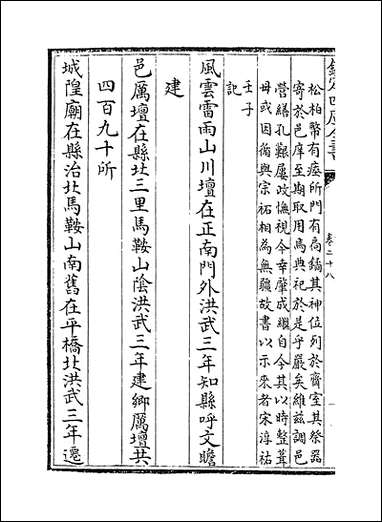 欽定四庫全書
卷二十八
松柏幣有瘞所門有扃鐍其神位列於齋室其祭器
寄於邑庠至期取用焉典祀於是乎嚴矣維茲調邑
營繕孔艱屢改憮視今幸肇成繼自今其以時整葺
毋或因循與宗祏相為無疆故書以示來者宋淳祐
壬子
記
風雲雷雨山川壇在正南門外洪武三年知縣呼文瞻
建
邑厲壇在縣北三里馬鞍山陰洪武三年建鄉厲壇共
四百九十所
城隍廟在縣治北馬鞍山南舊在平橋北洪武三年遷